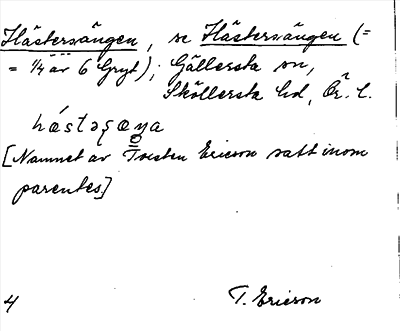 Hästersängen, se Hästersängen (=
= 1/4 av 6 Gryt); Gällersta sn,
Sköllersta hd, Ör. l.
[Namnet av Torsten Ericson satt inom
parentes]
4 T. Ericson